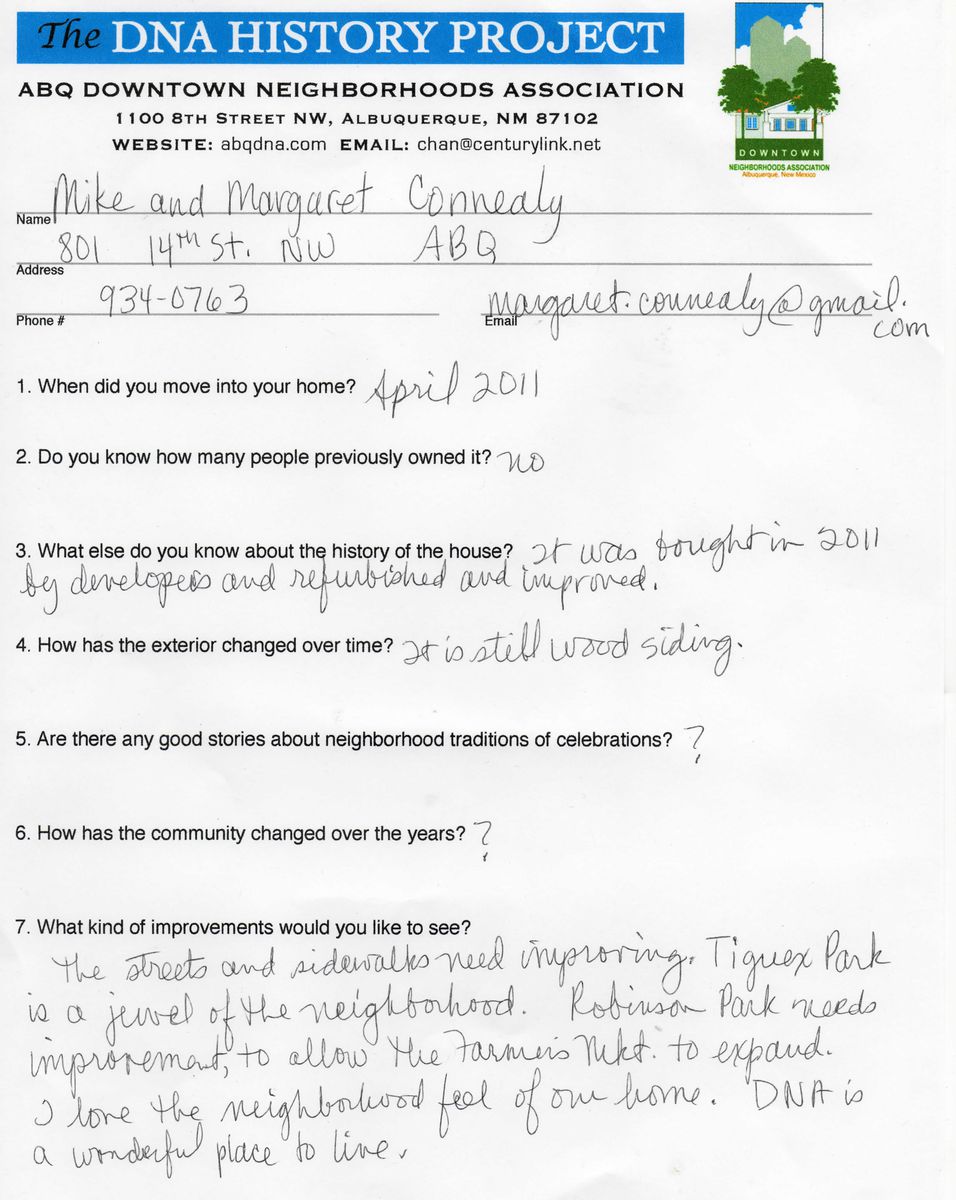 The DNA HISTORY PROJECT
ABQ DOWNTOWN NEIGHBORHOODS ASSOCIATION
1100 8TH STREET NW, ALBUQUERQUE, NM 87102
WEBSITE: abqdna.com EMAIL: chan@centurylink.net
DOWNTOWN
NEIGHBORHOODS ASSOCIATION
Albuquerque, New Mexico
Name Mike and Margaret Connealy
801 14TH St. NW ABQ
Address
934-0763 margaret.connealy@gmail.
com
Phone # Email
1. When did you move into your home? April 2011
2. Do you know how many people previously owned it? no
3. What else do you know about the history of the house? It was bought in 2011
by developers and refurbished and improved.
4. How has the exterior changed over time? It is still wood siding.
5. Are there any good stories about neighborhood traditions of celebrations? ?
6. How has the community changed over the years? ?
7. What kind of improvements would you like to see?
The streets and sidewalks need improving. Tiguex Park
is a jewel of the neighborhood. Robinson Park needs
improvement, to allow the Farmer's Mkt. to expand.
I love the neighborhood feel of our home. DNA is
a wonderful place to live.